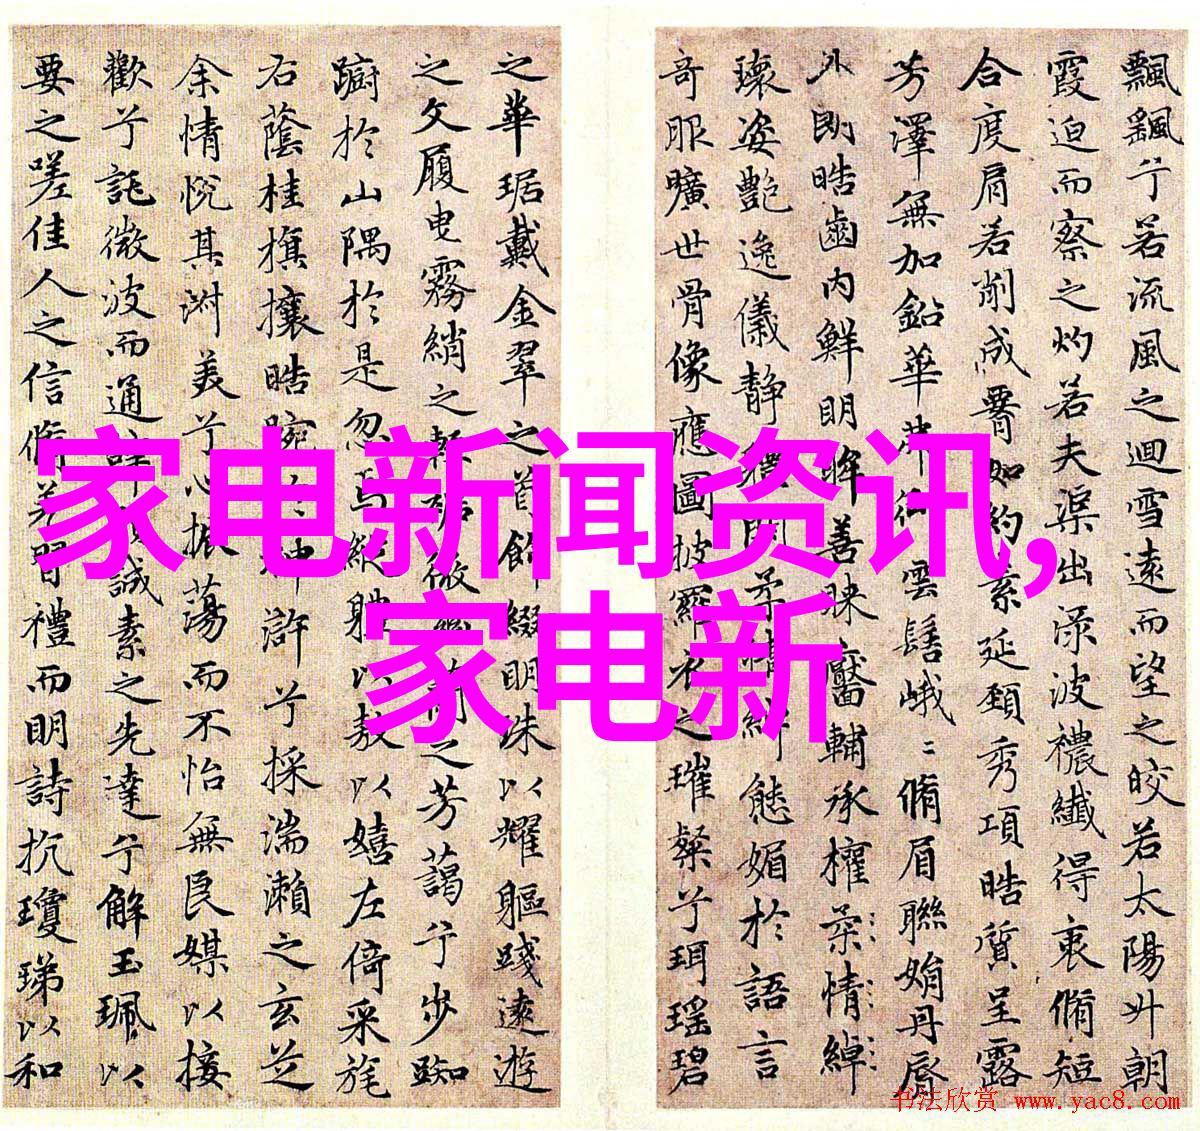 飄飖兮若流風之迴雪遠而望之皎若太陽升朝
霞迫而察之灼若夫渠出淥波禯纖得衷脩短
合度肩若削成如約素延頸秀項晧質呈露
芳澤無加鉛華弗御雲髻峨〻脩眉聯娟丹脣
外朗晧齒內鮮明眸善睞靨輔承權柔情綽
瓌姿艷逸儀靜體閑柔情綽態媚於語言
奇服曠世骨像應圖披羅衣之璀粲兮珥瑤碧
之華琚戴金翠之首飾綴明珠以耀軀踐遠遊
之文履曳霧綃之輕裾微幽蘭之芳藹兮步踟
蹰於山隅於是忽焉縱體以敖以嬉左倚采旄
右蔭桂旗攘晧腕於神滸兮採湍瀨之玄芝
余情悅其淑美兮心振蕩而不怡無良媒以接
歡兮託微波而通辭誠素之先達兮解玉珮以
要之嗟佳人之信脩羌習禮而明詩抗瓊珶以和
家电新闻资讯,
家电新
书法欣赏 www.yac8.com